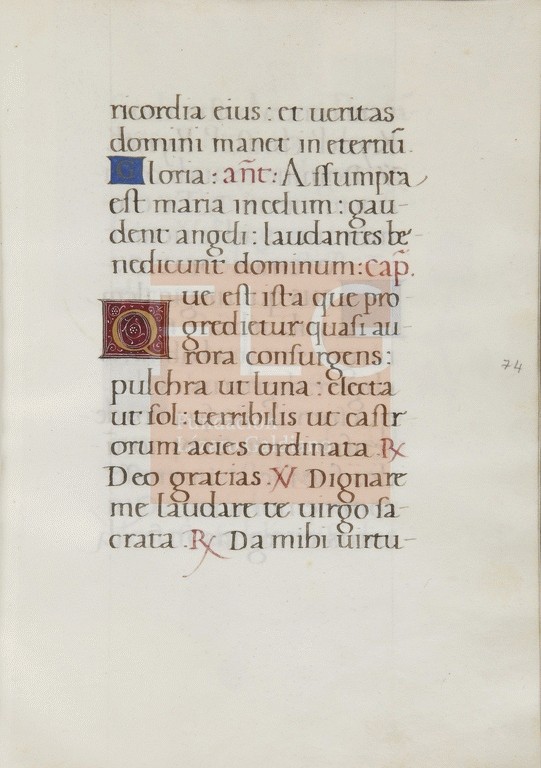 ricordia eius : et ueritas
domini manet in eternū
Gloria : añt : Assumpta
est maria in celum : gau-
dent angeli : laudantes be-
nedicunt dominum : cap̃.
Que est ista que pro
gredietur quasi au-
rora consurgens :
pulchra ut luna : electa
ut sol : terribilis ut castr
orum acies ordinata . ℟
Deo gratias . ℣ Dignare
me laudare te uirgo sa-
crata . ℟ Da mihi uirtu-
74
FLG
Fundación
Lázaro Galdiano